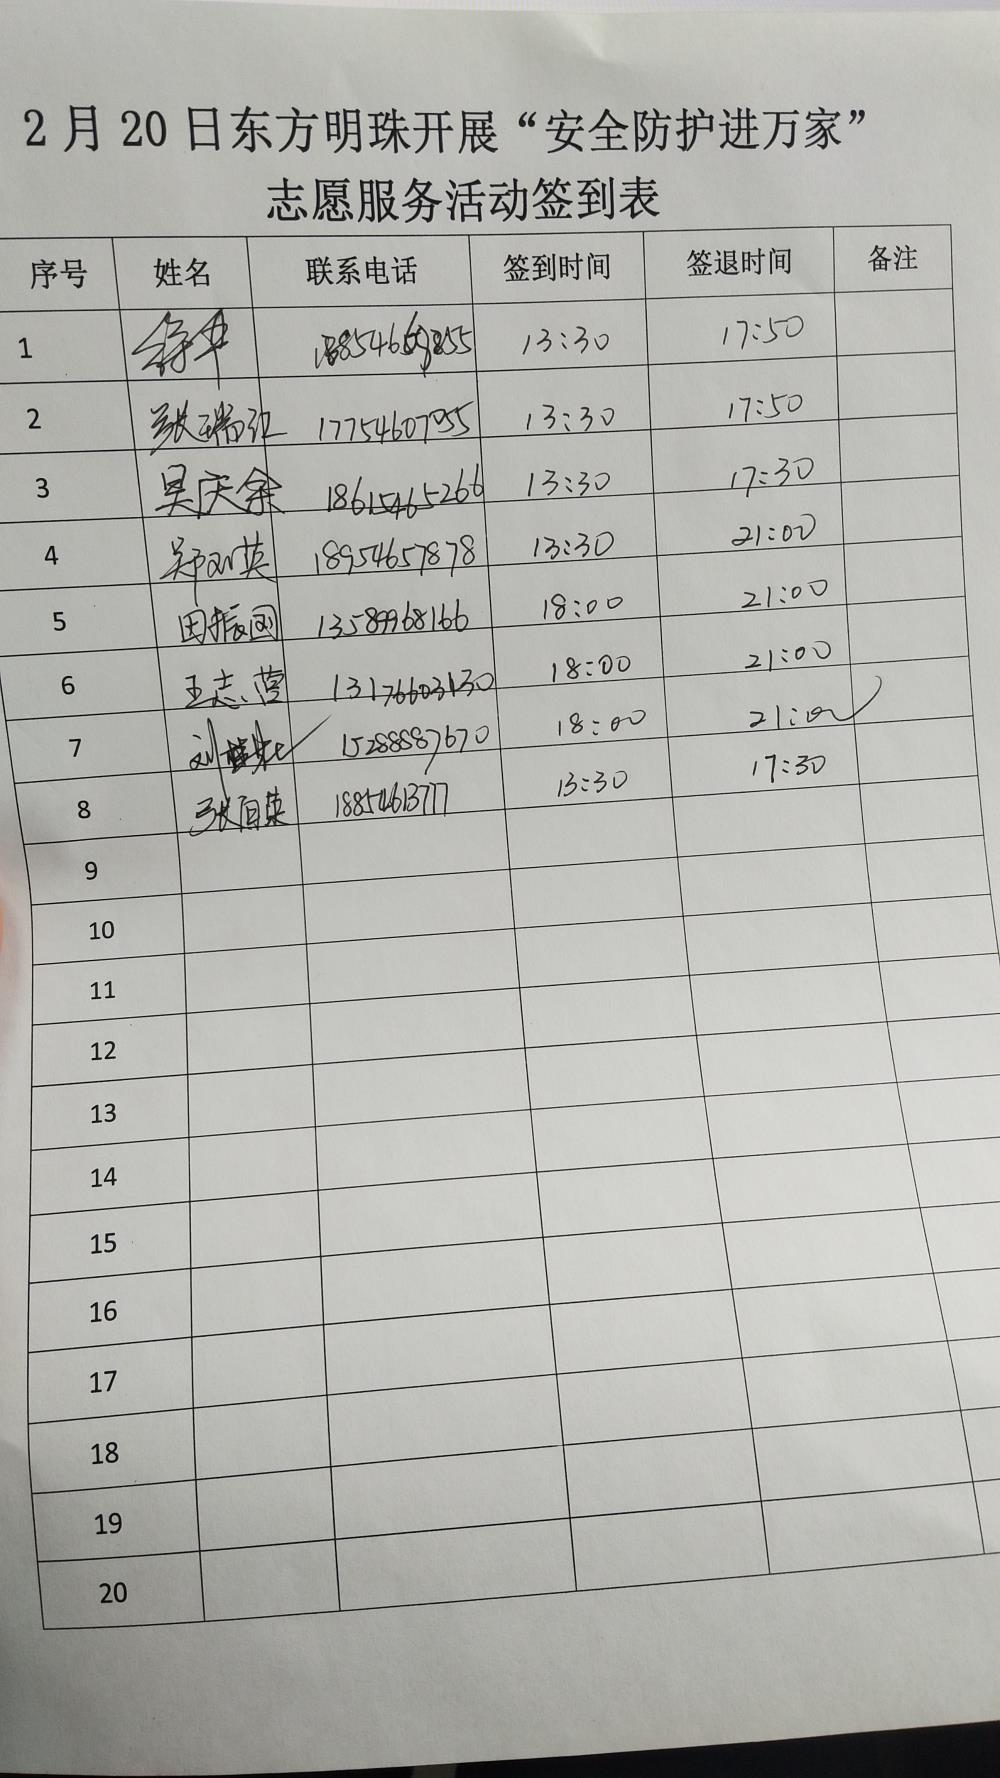 2月20日东方明珠开展“安全防护进万家”
志愿服务活动签到表
序号 姓名 联系电话 签到时间 签退时间 备注
1 13:30 17:50
2 张瑞红 17754607055 13:30 17:50
3 吴庆余 18615465266 13:30 17:30
4 18954657878 13:30 21:00
5 田振国 13589968166 18:00 21:00
6 王志营 13176603130 18:00 21:00
7 刘 15288887670 18:00 21:00
8 张百英 18854613777 13:30 17:30
9
10
11
12
13
14
15
16
17
18
19
20